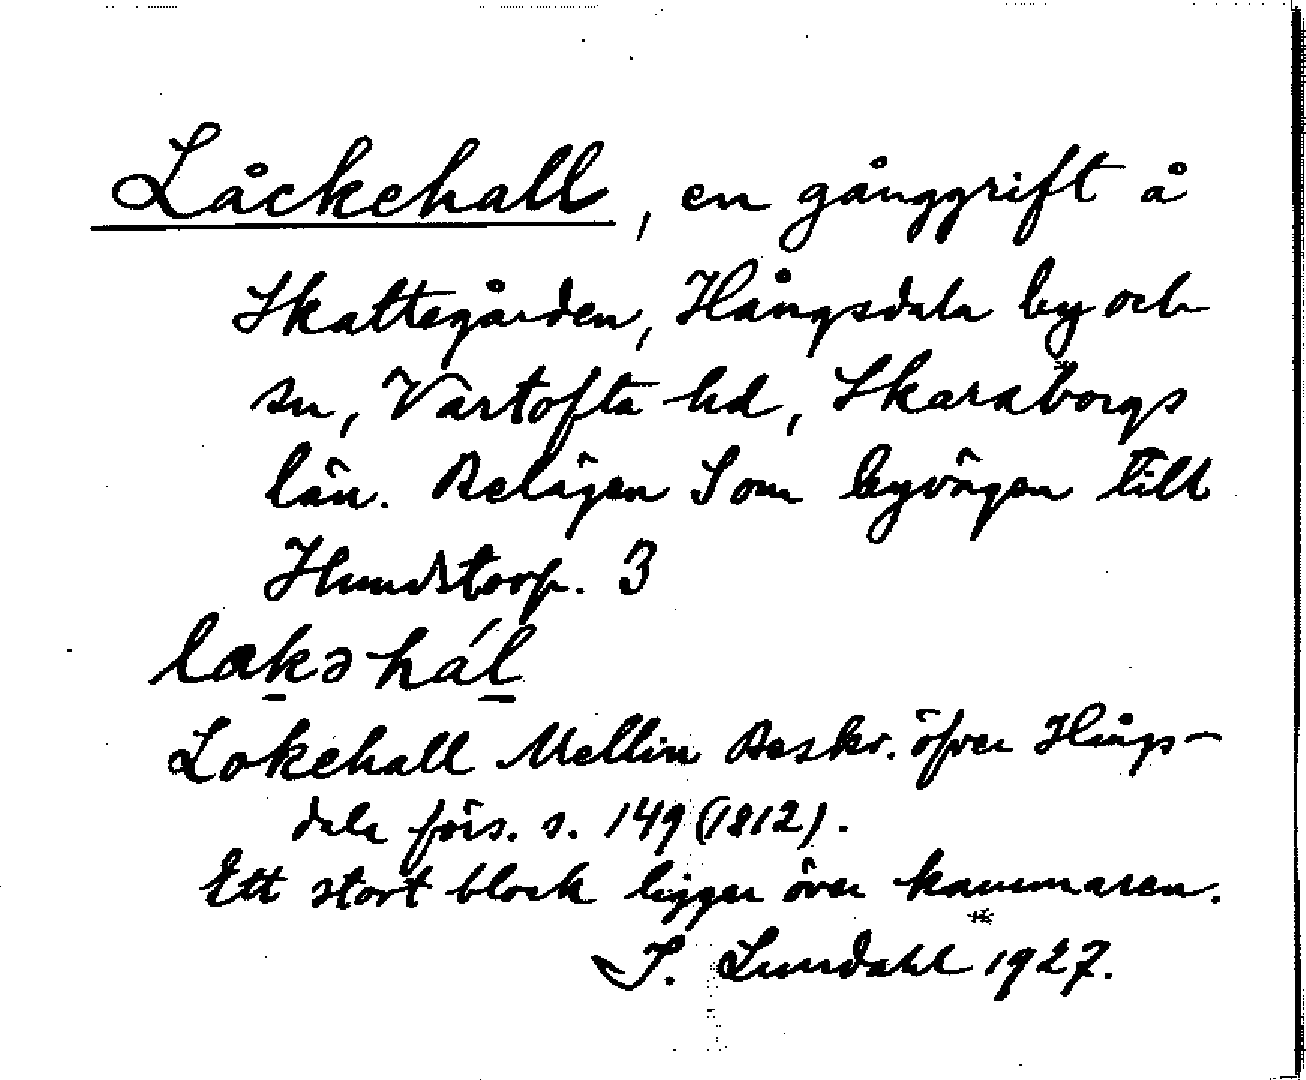 Låckehall, en gånggrift å
Skattegården, Hångsdala by och
sn, Vartofta hd, Skaraborgs
län. Belägen S om byvägen till
Hundstorp. 3
lakə hál
Lokehall Mellin Beskr. öfver Hångs-
dala förs. s. 149 (1812).
Ett stort block ligger över kammaren.
I. Lundahl 1927.